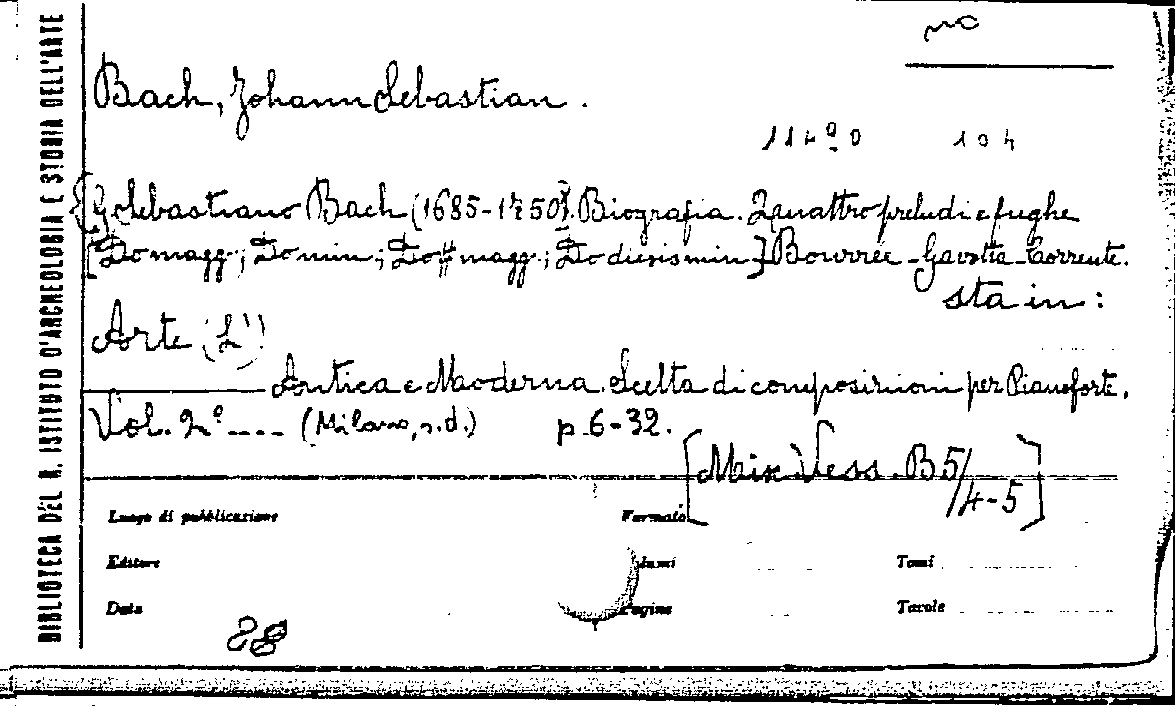 BIBLIOTECA DEL R. ISTITUTO D'ARCHEOLOGIA E STORIA DELL'ARTE
no
Bach, Johann Sebastian.
104
[G. Sebastiano Bach (1685-1750). Biografia. Quattro preludi e fughe
[Do magg.; Do min.; Do# magg.; Do diesis min.] Bourrée - Gavotta - Corrente.
sta in:
Arte (L')
Antica e Moderna. Scelta di composizioni per Pianoforte.
Vol. 2º---- (Milano, s.d.) p. 6-32.
[Misc. Vess. B 5/4-5]
Luogo di pubblicazione
Formato
Editore
lumi
Tomi
Data
Pagine
Tavole
88